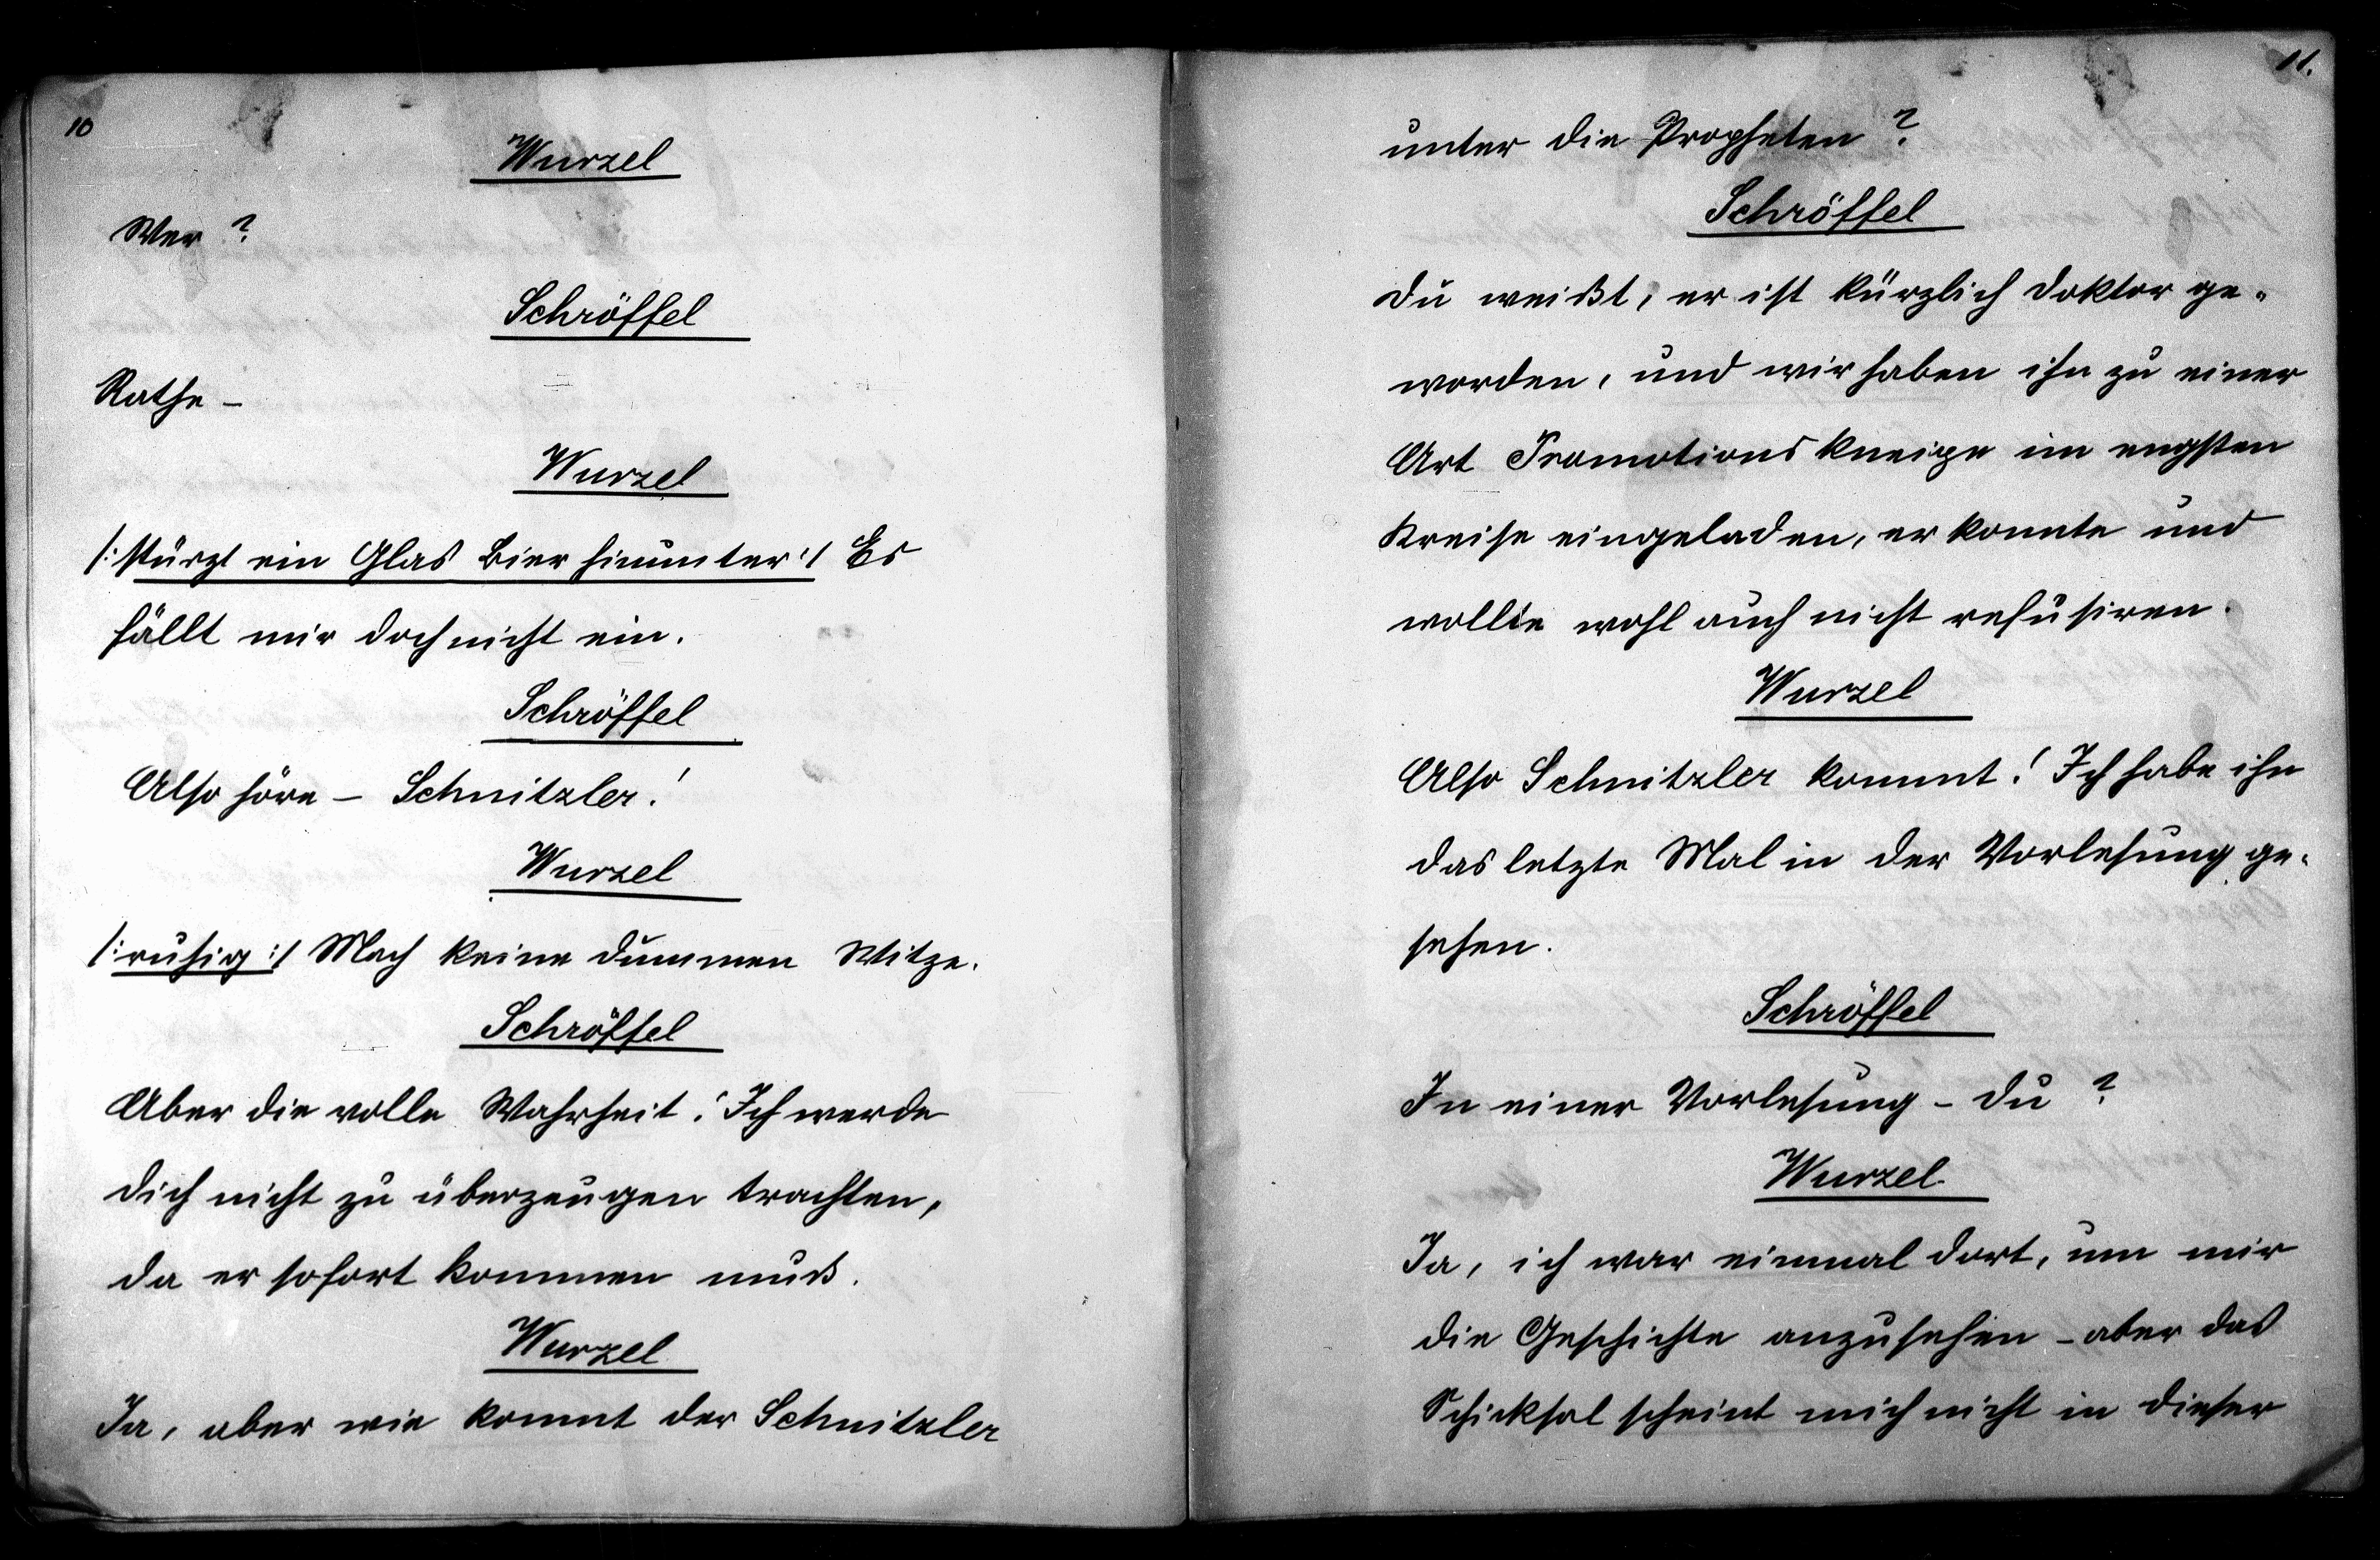 10
Wurzel
Wer?
Schröffel
Rathe –
Wurzel
/: stürzt ein Glas Bier hinunter :/ Es
fällt mir doch nicht ein.
Schröffel
Also höre – Schnitzler!
Wurzel
/: ruhig :/ Mach keine dummen Witze.
Schröffel
Aber die volle Wahrheit! Ich werde
dich nicht zu überzeugen trachten,
da er sofort kommen muß.
Wurzel
Ja, aber wie kommt der Schnitzler
11.
unter die Propheten?
Schröffel
Du weißt, er ist kürzlich Doktor ge-
worden, und wir haben ihn zu einer
Art Promotionskneipe im engsten
Kreise eingeladen, er konnte und
wollte wohl auch nicht refüsiren.
Wurzel
Also Schnitzler kommt! Ich habe ihn
das letzte Mal in der Vorlesung ge-
sehen.
Schröffel
In einer Vorlesung – Du?
Wurzel
Ja, ich war einmal dort, um mir
die Geschichte anzusehen – aber das
Schicksal scheint mich nicht in dieser